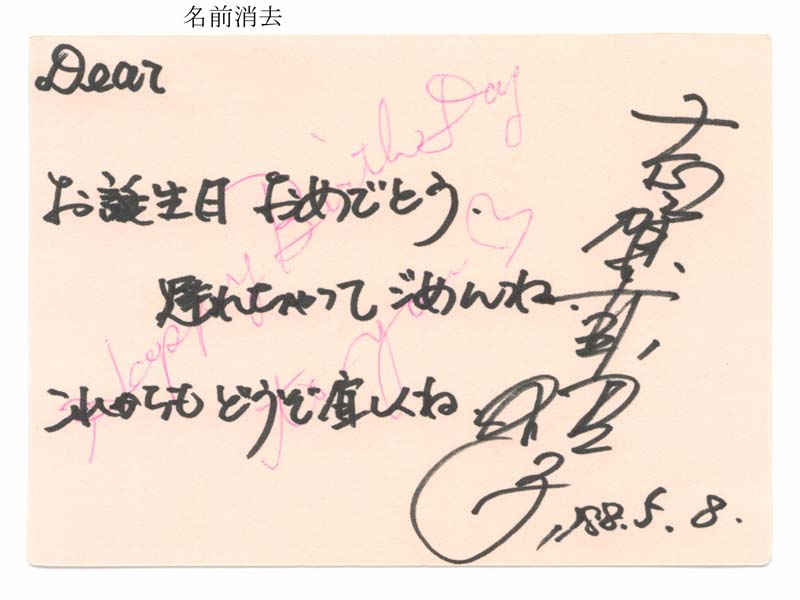 名前消去
Dear
お誕生日 おめでとう.
遅れちゃって ごめんね.
これからも どうぞ宜しくね
Happy Birthday
to you
志賀真理子
, '88. 5. 8.